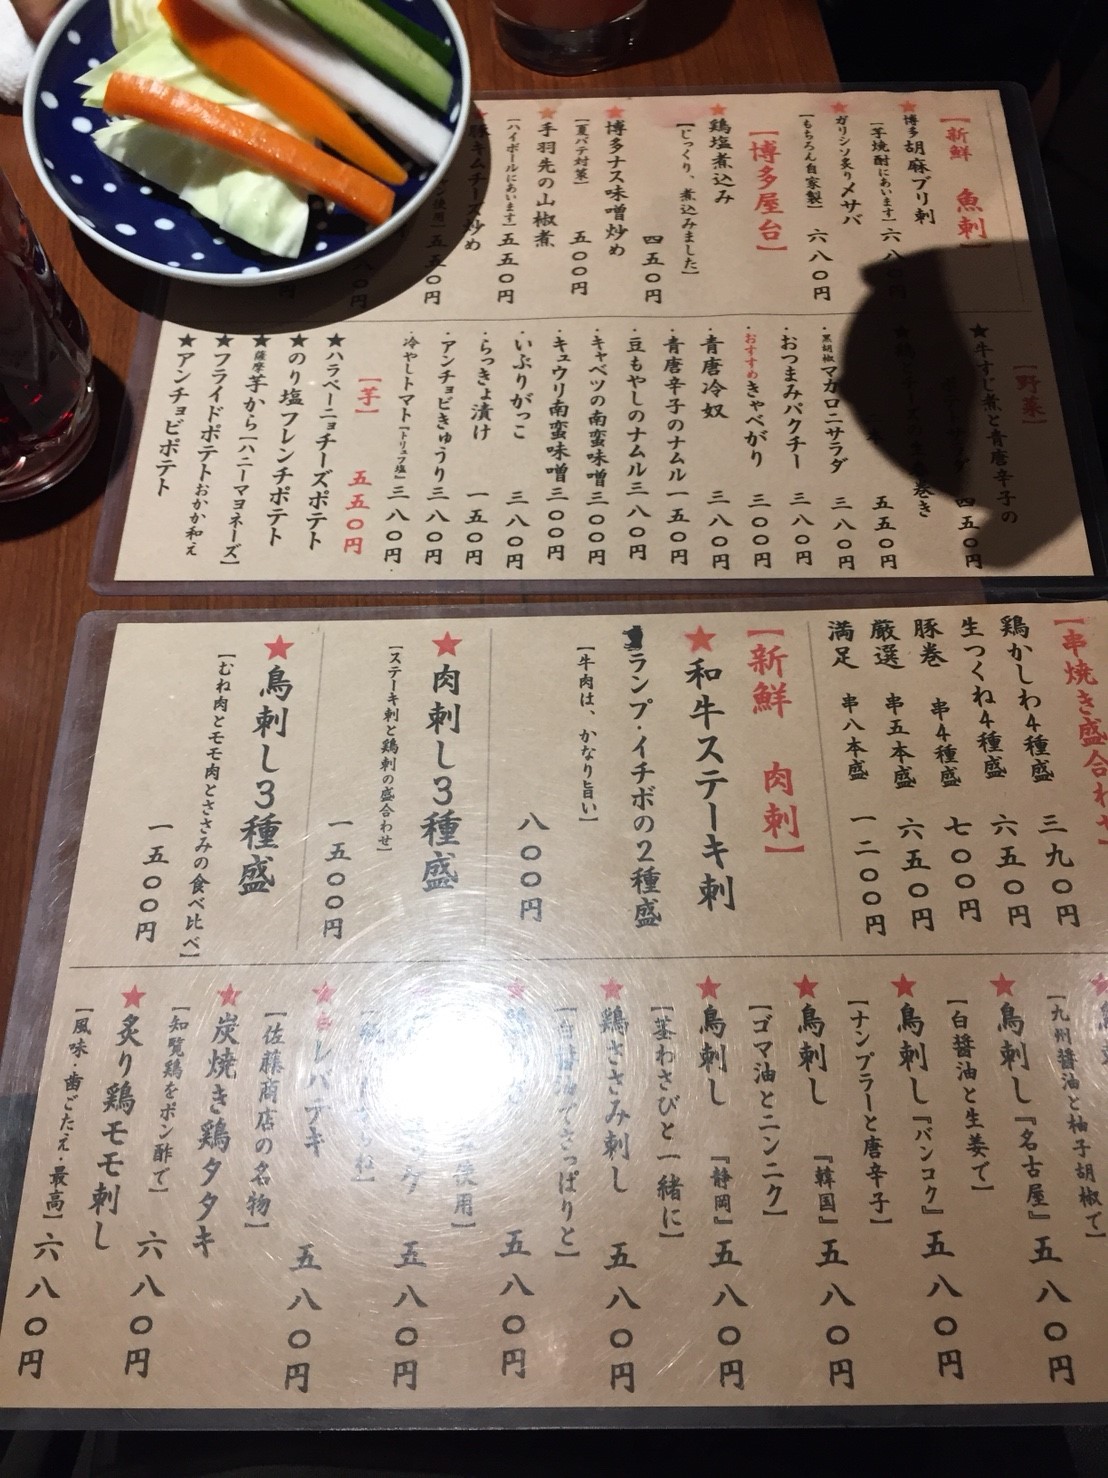 【新鮮 魚刺】
★博多胡麻ブリ刺
【芋焼酎にあいます】
★ガリシソ炙り〆サバ
【もちろん自家製】
六八〇円
【博多屋台】
★鶏塩煮込み
【じっくり、煮込みました】
四五〇円
★博多ナス味噌炒め
【夏バテ対策】
五〇〇円
★手羽先の山椒煮
【ハイボールにあいます】
五五〇円
キムチーズ炒め
五五〇円
【野菜】
★牛すじ煮と青唐辛子の
四五〇円
五五〇円
・黒胡椒マカロニサラダ 三八〇円
・おつまみパクチー 三八〇円
・おすすめきゃべがり 三〇〇円
・青唐冷奴 三八〇円
・青唐辛子のナムル 一五〇円
・豆もやしのナムル 三八〇円
・キャベツの南蛮味噌 三〇〇円
・キュウリ南蛮味噌 三〇〇円
・いぶりがっこ 三八〇円
・らっきょ漬け 一五〇円
・アンチョビきゅうり 三八〇円
・冷やしトマト『トリュフ塩』 三八〇円
【芋】 五五〇円
★ハラペーニョチーズポテト
★のり塩フレンチポテト
★薩摩芋から【ハニーマヨネーズ】
★フライドポテトおかか和え
★アンチョビポテト
【串焼き盛合わせ】
鶏かしわ4種盛 三九〇円
生つくね4種盛 六五〇円
豚巻 串4種盛 七〇〇円
厳選 串五本盛 六五〇円
満足 串八本盛 一二〇〇円
【新鮮 肉刺】
★和牛ステーキ刺
ランプ・イチボの2種盛
【牛肉は、かなり旨い】
八〇〇円
★肉刺し3種盛
【ステーキ刺と鶏刺の盛合わせ】
一五〇〇円
★鳥刺し3種盛
【むね肉とモモ肉とささみの食べ比べ】
一五〇〇円
【九州醤油と柚子胡椒で】
五八〇円
★鳥刺し『名古屋』
【白醤油と生姜で】
五八〇円
★鳥刺し『バンコク』
【ナンプラーと唐辛子】
五八〇円
★鳥刺し『韓国』
【ゴマ油とニンニク】
五八〇円
★鳥刺し『静岡』
【茎わさびと一緒に】
五八〇円
★鶏ささみ刺し
【白醤油でさっぱりと】
五八〇円
使用】
五八〇円
五八〇円
レバテキ
【佐藤商店の名物】
五八〇円
★炭焼き鶏タタキ
【知覧鶏をポン酢で】
六八〇円
★炙り鶏モモ刺し
【風味・歯ごたえ・最高】
六八〇円